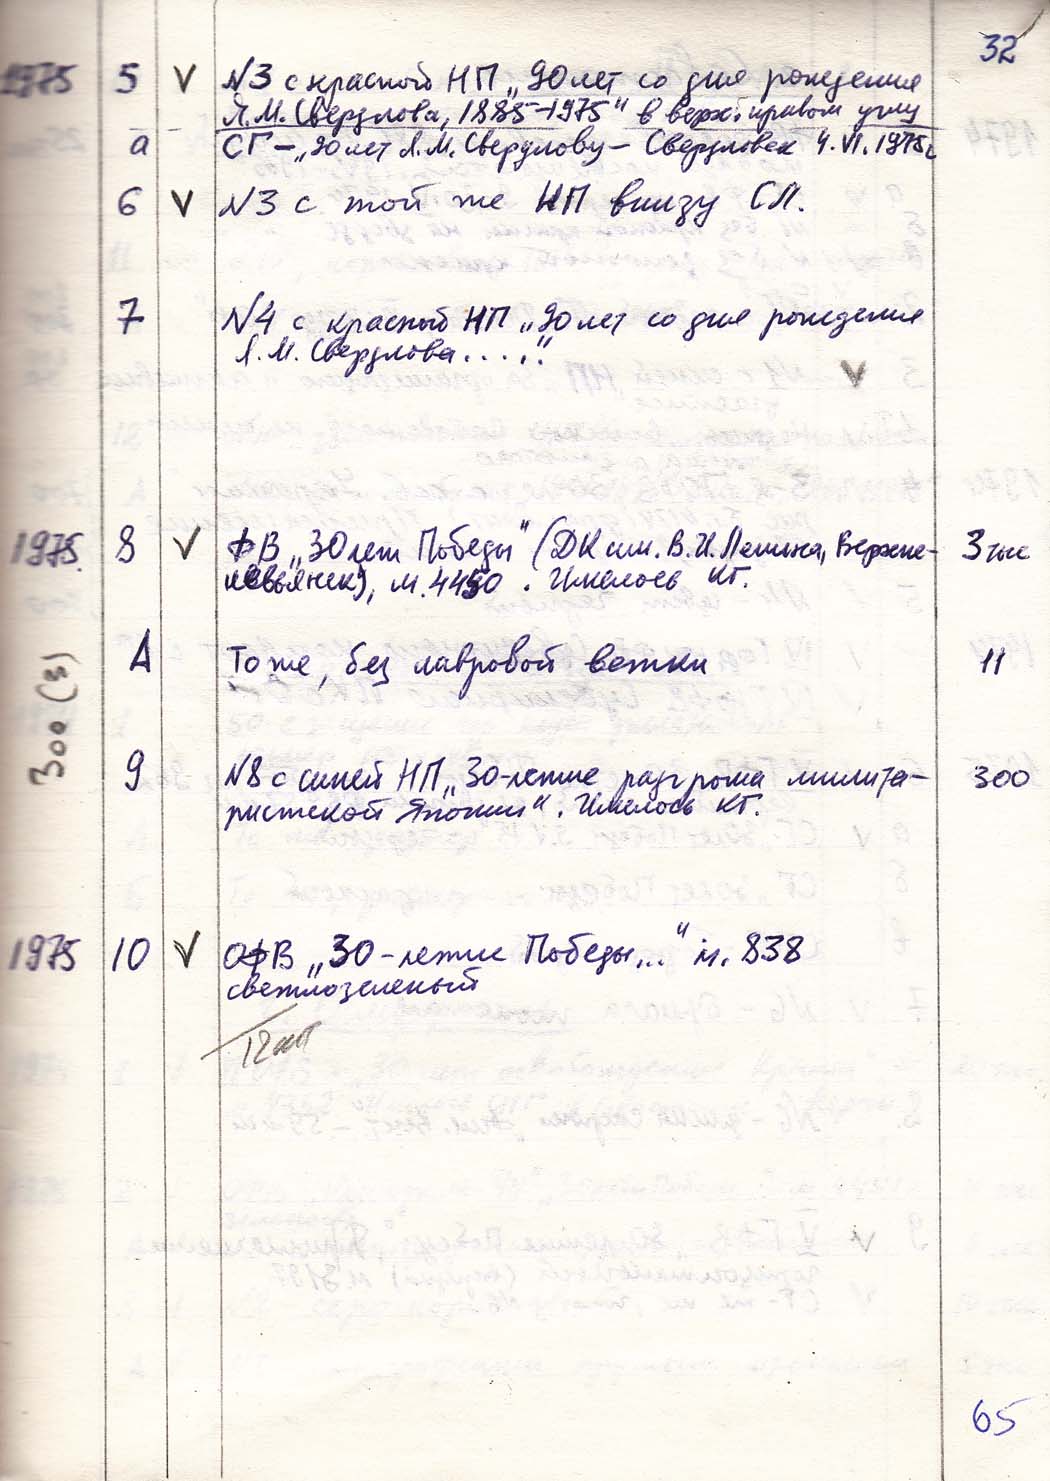 32
1975 5 V N3 с красной НП „90 лет со дня рождения
Я.М. Свердлова, 1885-1975" в верх. правом углу
а СГ – „90 лет Я.М. Свердлову – Свердловск 4.VI.1975г.
6 V N3 с той же НП внизу СЛ.
7 N4 с красной НП „90 лет со дня рождения
Я.М. Свердлова....."
V
1975. 8 V ФВ „30 лет Победы" (ДК им. В.И. Ленина, Верхне- 3 тыс
невьянск), м. 4450. Имелось КГ.
А То же, без лавровой ветки 11
300 (з)
9 N8 с синей НП „30-летие разгрома милита- 300
ристской Японии". Имелось КГ.
1975 10 V ОФВ „30-летие Победы..." м. 838
светлозеленый
12 шт
65